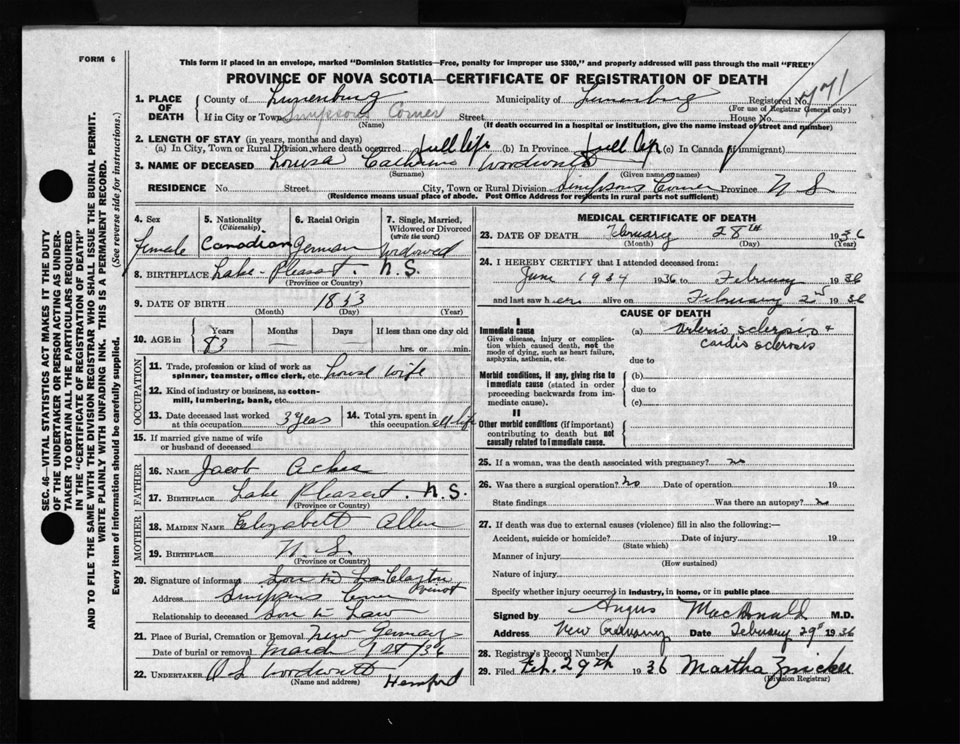 FORM 6
This form if placed in an envelope, marked "Dominion Statistics—Free, penalty for improper use $300," and properly addressed will pass through the mail "FREE"
PROVINCE OF NOVA SCOTIA—CERTIFICATE OF REGISTRATION OF DEATH
1. PLACE OF DEATH County of Lunenburg Municipality of Lunenburg Registered No. 771
(For use of Registrar General only)
If in City or Town Simpsons Corner Street House No.
(Name) (If death occurred in a hospital or institution, give the name instead of street and number)
2. LENGTH OF STAY (in years, months and days)
(a) In City, Town or Rural Division, where death occurred full life (b) In Province full life (c) In Canada (if immigrant)
3. NAME OF DECEASED Louisa Catherine
(Surname) (Given name or names)
RESIDENCE No. Street City, Town or Rural Division Simpsons Corner Province N S
(Residence means usual place of abode. Post Office Address for residents in rural parts not sufficient)
SEC. 46—VITAL STATISTICS ACT MAKES IT THE DUTY OF THE UNDERTAKER OR PERSON ACTING AS UNDERTAKER TO OBTAIN ALL THE PARTICULARS REQUIRED IN THE "CERTIFICATE OF REGISTRATION OF DEATH" AND TO FILE THE SAME WITH THE DIVISION REGISTRAR WHO SHALL ISSUE THE BURIAL PERMIT.
WRITE PLAINLY WITH UNFADING INK. THIS IS A PERMANENT RECORD.
Every item of information should be carefully supplied. (See reverse side for instructions.)
4. Sex Female
5. Nationality (Citizenship) Canadian
6. Racial Origin German
7. Single, Married, Widowed or Divorced (write the word) Widowed
8. BIRTHPLACE Lake Pleasant. N.S.
(Province or Country)
9. DATE OF BIRTH 1853
(Month) (Day) (Year)
10. AGE in Years 83 Months — Days If less than one day old
hrs. or min.
OCCUPATION
11. Trade, profession or kind of work as spinner, teamster, office clerk, etc. House wife
12. Kind of industry or business, as cotton-mill, lumbering, bank, etc.
13. Date deceased last worked at this occupation 3 years
14. Total yrs. spent in this occupation all life
15. If married give name of wife or husband of deceased
FATHER
16. NAME Jacob
17. BIRTHPLACE Lake Pleasant. N.S.
(Province or Country)
MOTHER
18. MAIDEN NAME Elizabeth Allen
19. BIRTHPLACE N. S.
(Province or Country)
20. Signature of informant
Address Simpsons Corner
Relationship to deceased Son in Law
21. Place of Burial, Cremation or Removal New Germany
Date of burial or removal March 1st /36
22. UNDERTAKER Hemford
(Name and address)
MEDICAL CERTIFICATE OF DEATH
23. DATE OF DEATH February 28th 1936
(Month) (Day) (Year)
24. I HEREBY CERTIFY that I attended deceased from:
June 1934 1936 to February 1936
and last saw her alive on February 2nd 1936
CAUSE OF DEATH
I
Immediate cause
Give disease, injury or complication which caused death, not the mode of dying, such as heart failure, asphyxia, asthenia, etc.
(a) Arterio sclerosis +
cardio sclerosis
due to
Morbid conditions, if any, giving rise to immediate cause (stated in order proceeding backwards from immediate cause).
(b)
due to
(c)
II
Other morbid conditions (if important) contributing to death but not causally related to immediate cause.
25. If a woman, was the death associated with pregnancy? no
26. Was there a surgical operation? no Date of operation 19
State findings Was there an autopsy? no
27. If death was due to external causes (violence) fill in also the following:—
Accident, suicide or homicide? Date of injury 19
(State which)
Manner of injury
(How sustained)
Nature of injury
Specify whether injury occurred in industry, in home, or in public place
Signed by Angus MacDonald M.D.
Address New Germany Date February 29th 1936
28. Registrar's Record Number
29. Filed Feb. 29th 1936 Martha Zwicker
(Division Registrar)